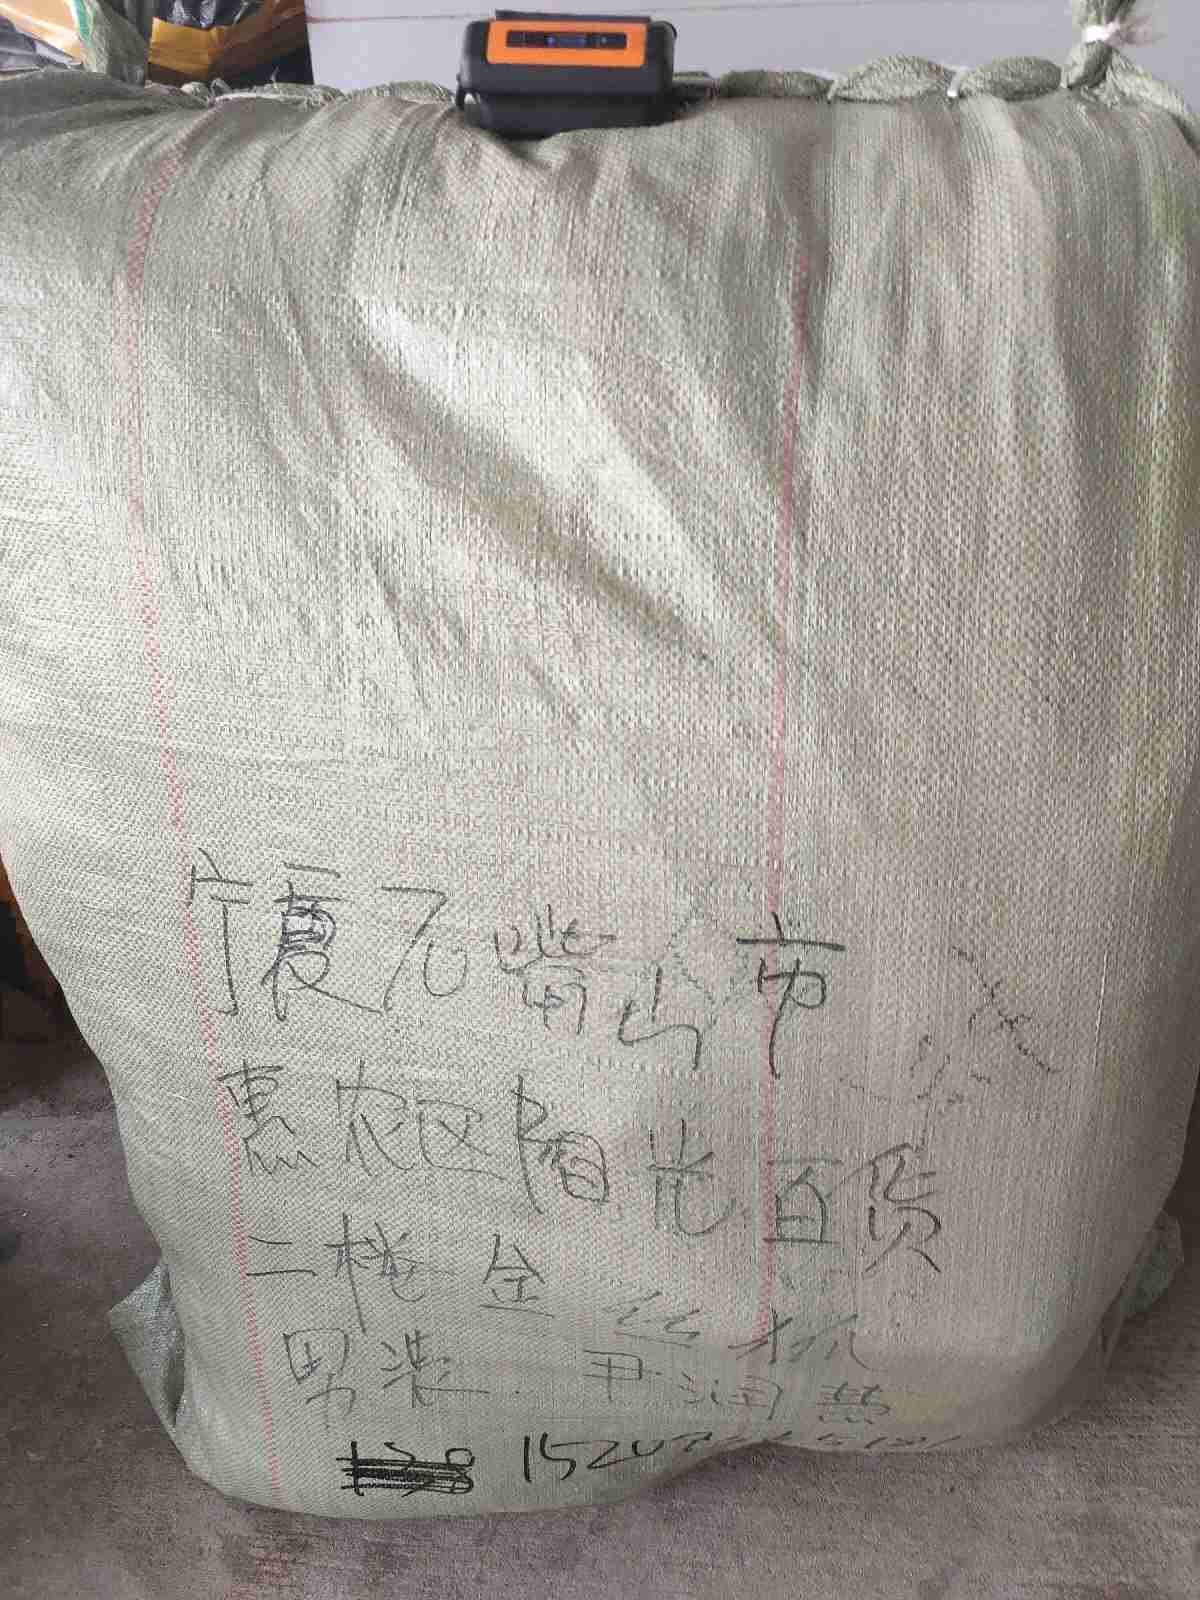 宁夏石嘴山市
惠农区阳光百货
二楼金丝狐
男装 尹润慧
1520